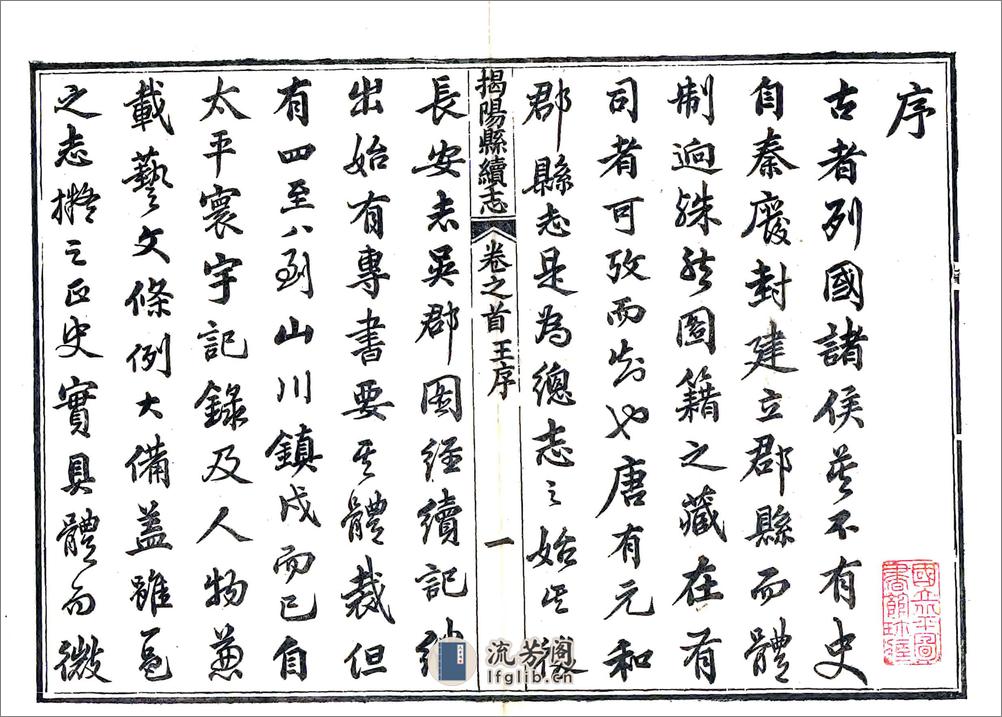 序
古者列國諸侯莫不有史
自秦廢封建立郡縣而體
制逈殊然圖籍之藏在有
司者可攷而知也唐有元和
郡縣志是為總志之始其後
揭陽縣續志
卷之首 王序
一
長安志吳郡圖經續記
出始有專書要其體裁但
有四至八到山川鎮戍而已自
太平寰宇記錄及人物兼
載藝文條例大備蓋雖邑
之志擬之正史實具體而微
流芳阁
lfglib.cn